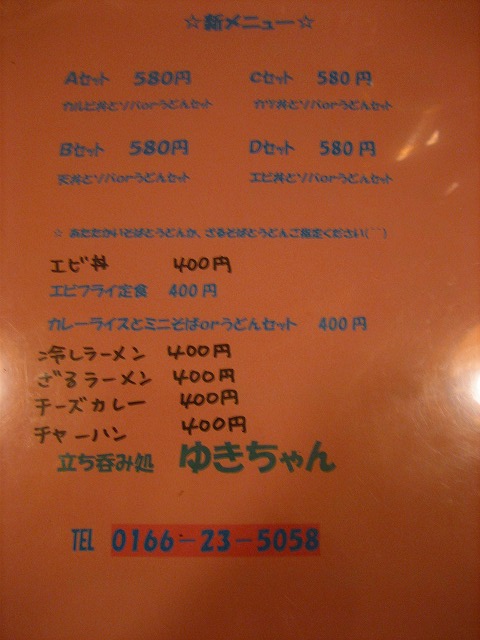 ☆新メニュー☆
Aセット 580円
カルビ丼とソバorうどんセット
Cセット 580円
カツ丼とソバorうどんセット
Bセット 580円
天丼とソバorうどんセット
Dセット 580円
エビ丼とソバorうどんセット
☆ あたたかいそばとうどんか、ざるそばとうどんご指定ください(^^)
エビ丼 400円
エビフライ定食 400円
カレーライスとミニそばorうどんセット 400円
冷しラーメン 400円
ざるラーメン 400円
チーズカレー 400円
チャーハン 400円
立ち呑み処 ゆきちゃん
TEL 0166-23-5058